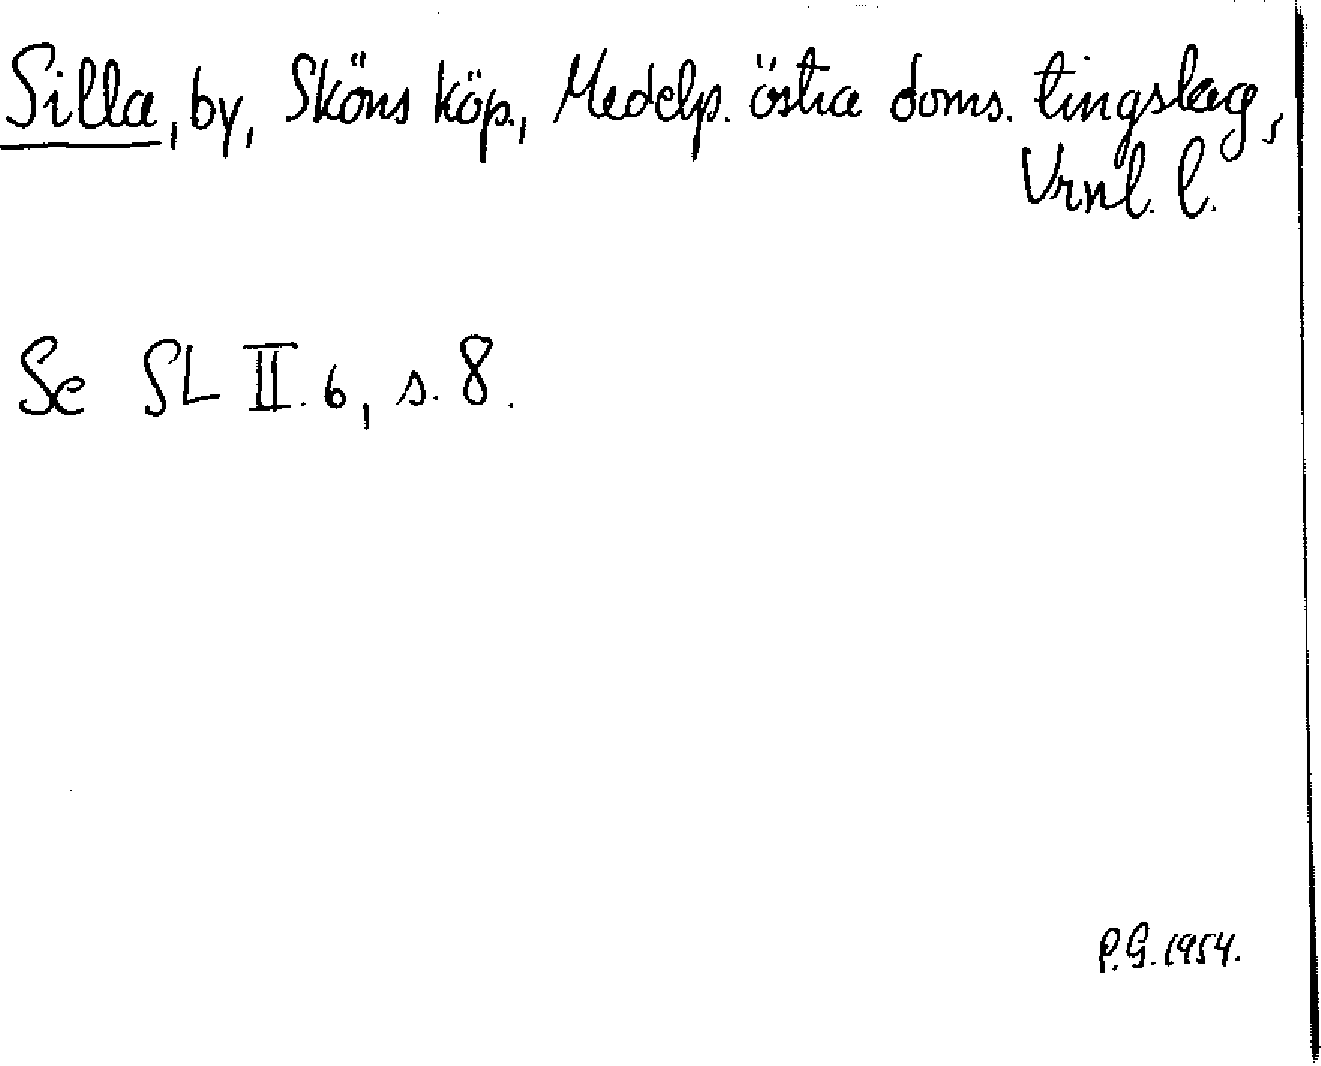 Silla, by, Sköns köp., Medelp. östra doms. tingslag,
Vrnl. l.
Se SL II. 6, s. 8.
P.G. 1954.